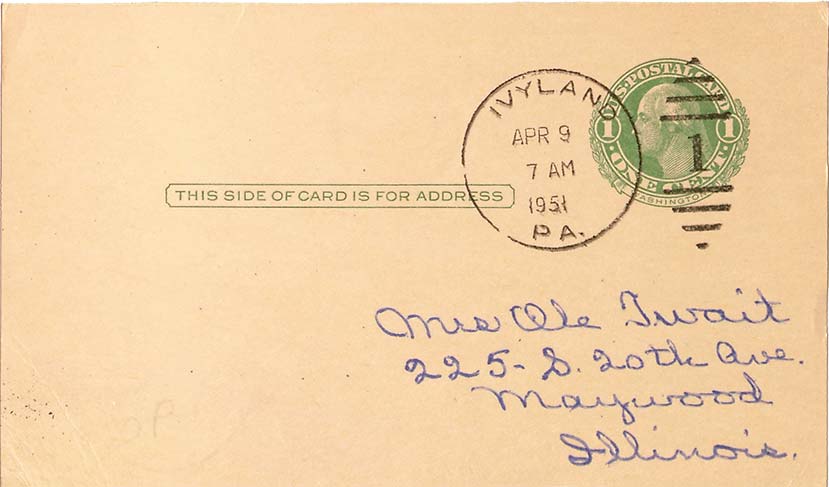 U.S. POSTAL CARD
1 1
ONE CENT
WASHINGTON
IVYLAND
APR 9
7 AM
1951
PA.
1
THIS SIDE OF CARD IS FOR ADDRESS
Mrs Ole Twait
225- S. 20th Ave.
Maywood
Illinois.